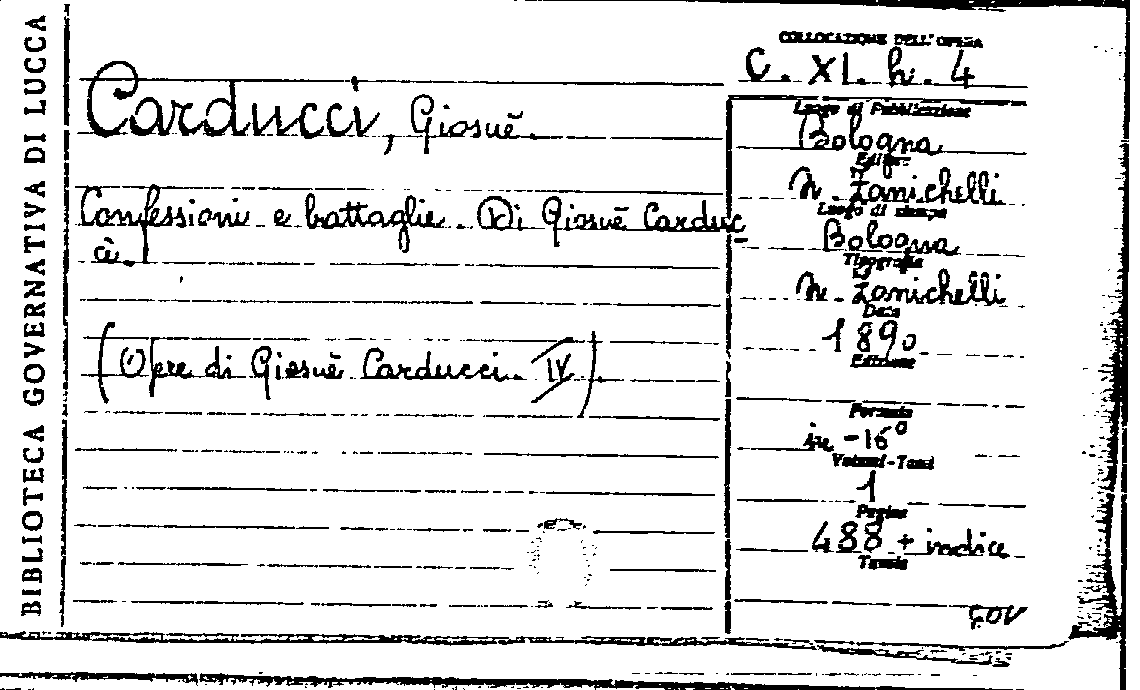 BIBLIOTECA GOVERNATIVA DI LUCCA
Carducci, Giosuè.
Confessioni e battaglie. Di Giosuè Carduc-
ci.
(Opere di Giosuè Carducci. IV).
COLLOCAZIONE DELL'OPERA
C. XI. h. 4
Luogo di Pubblicazione
Bologna
Editore
N. Zanichelli
Luogo di stampa
Bologna
Tipografia
N. Zanichelli
Data
1890
Edizione
Formato
in-16°
Volumi-Tomi
1
Pagine
488 + indice
Tavole
GOV